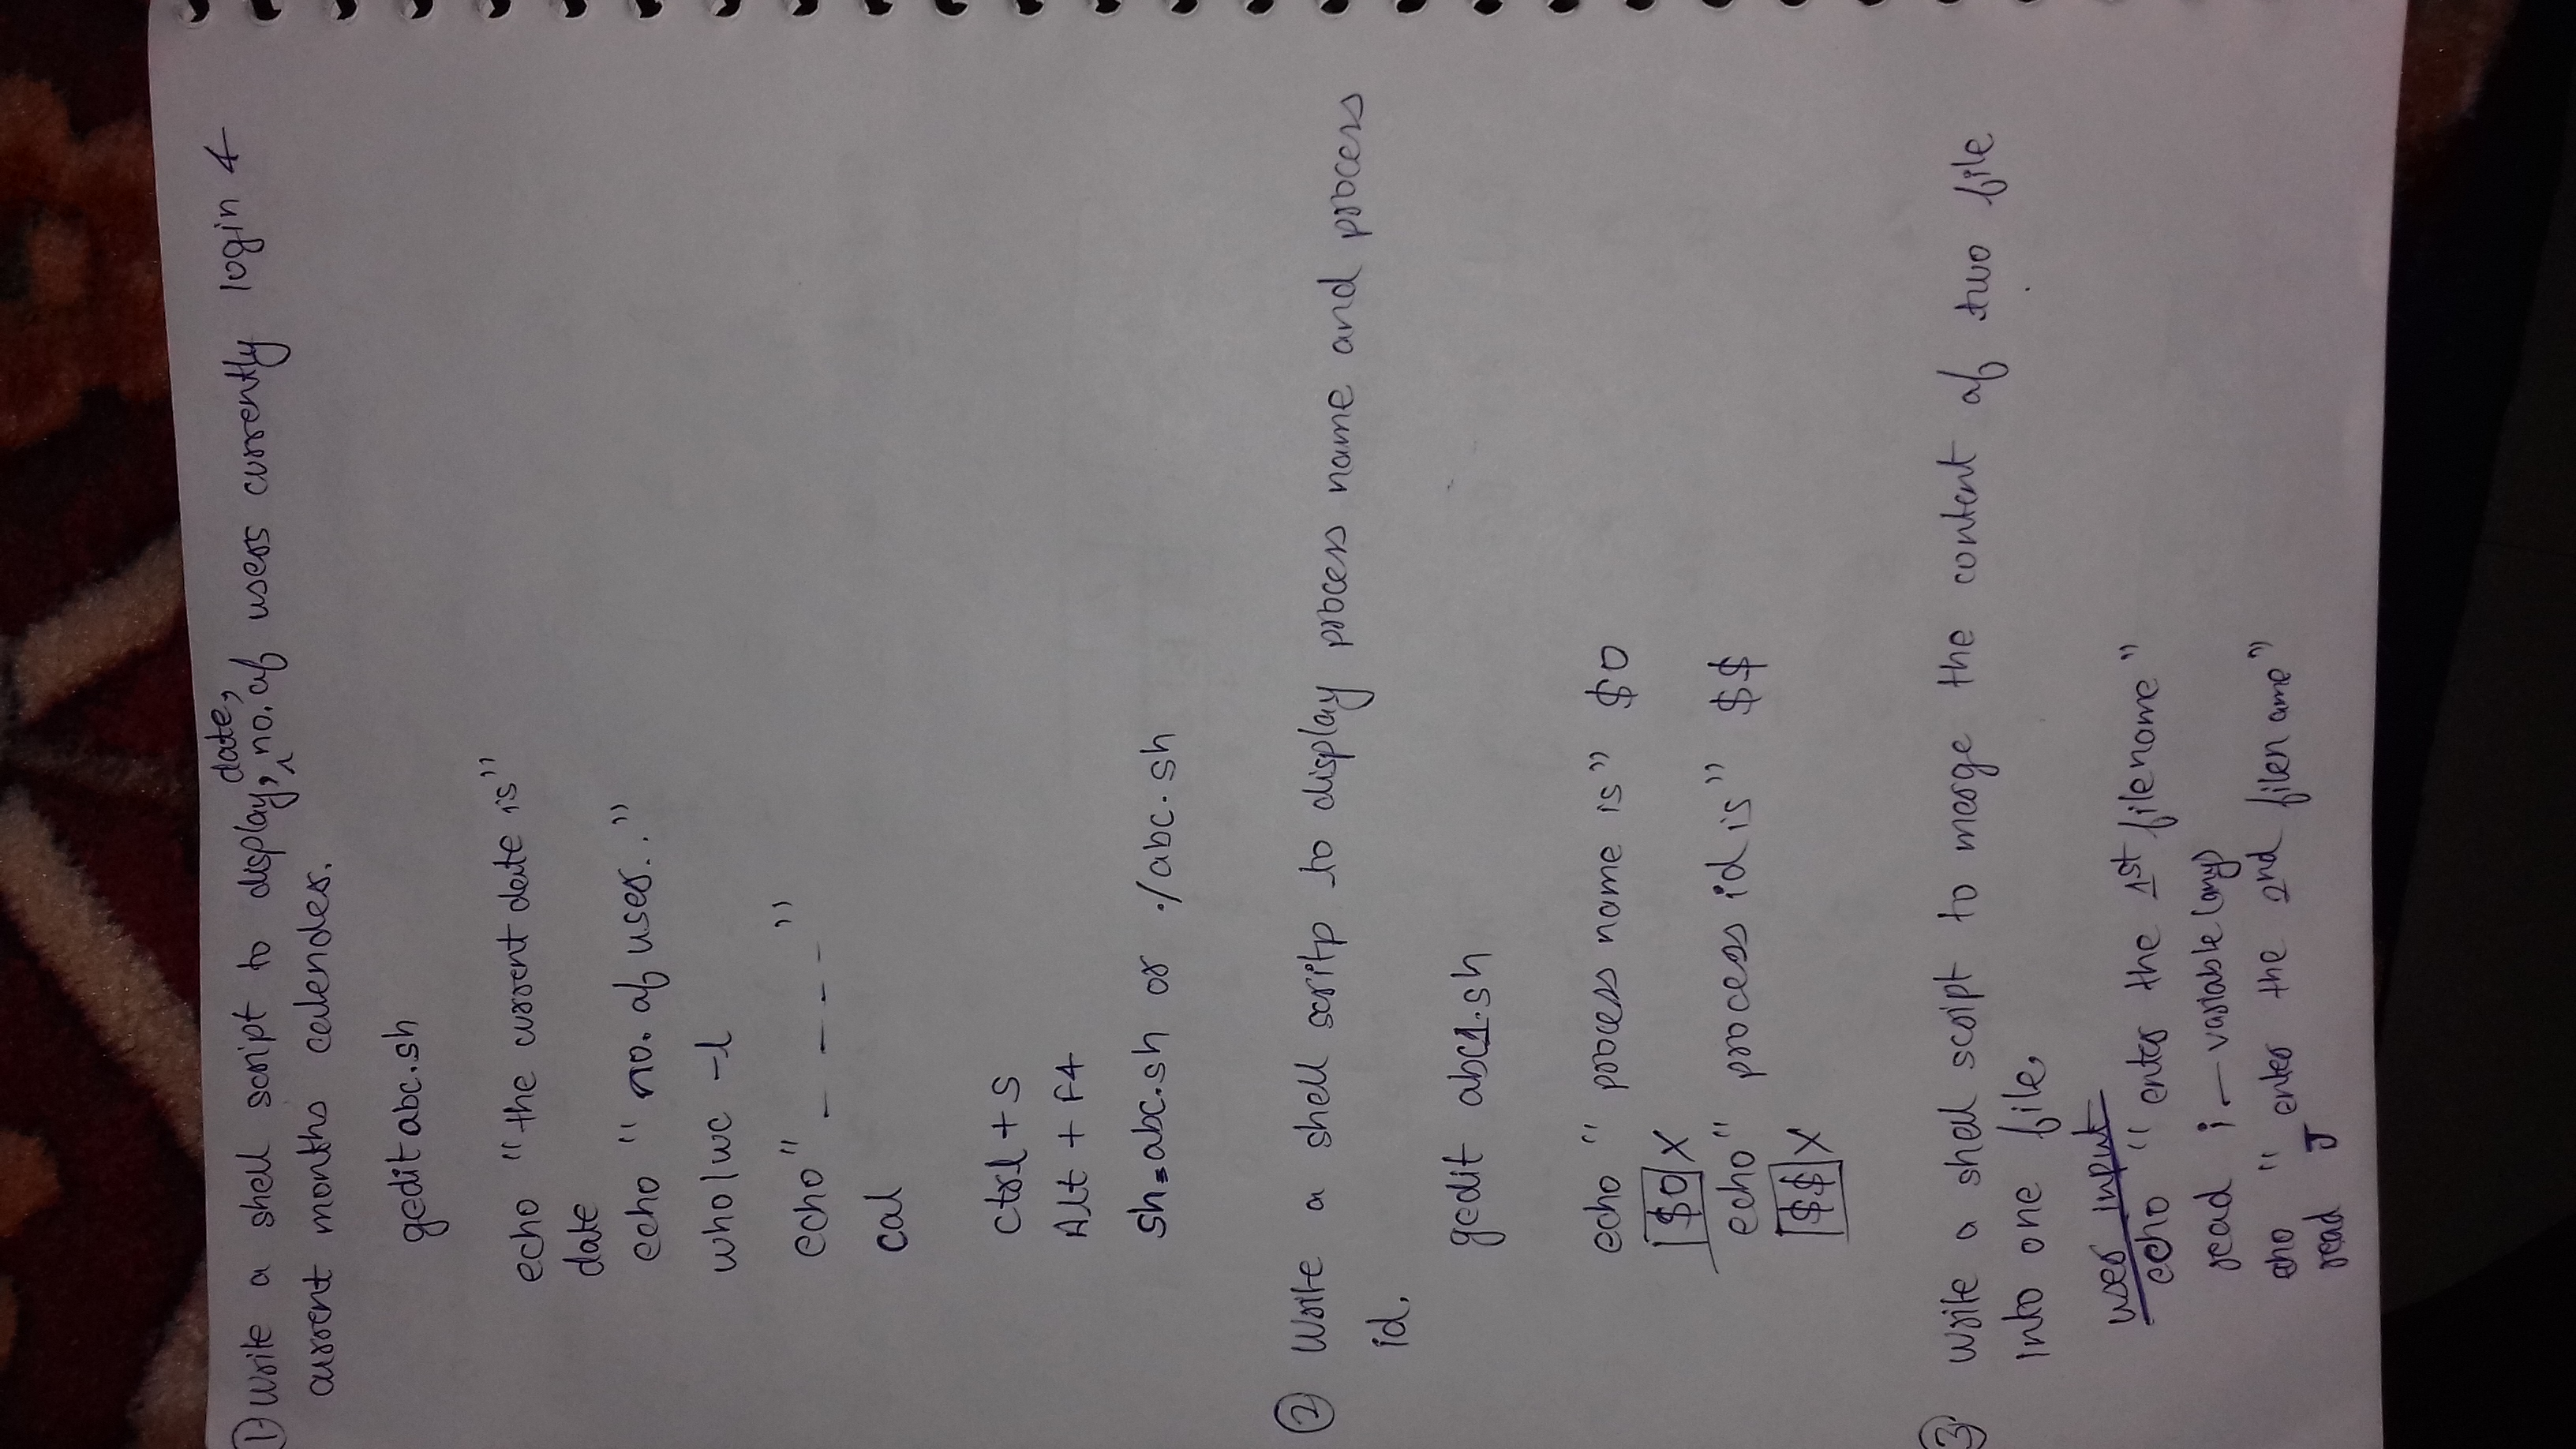 1) Write a shell script to display, date, no. of users currently login &
current months calender.
gedit abc.sh
echo "the current date is"
date
echo " no. of user.."
who | wc -l
echo "_ _ _ _"
cal
ctrl + s
Alt + F4
sh abc.sh or ./abc.sh
2 Write a shell scritp to display process name and process
id.
gedit abc1.sh
echo " process name is" $0
$0 x
echo " process id is" $$
$$ x
3 Write a shell script to merge the content of two file
into one file.
user input
echo " enter the 1st filename"
read i — variable (any)
eho " enter the 2nd filename"
read J